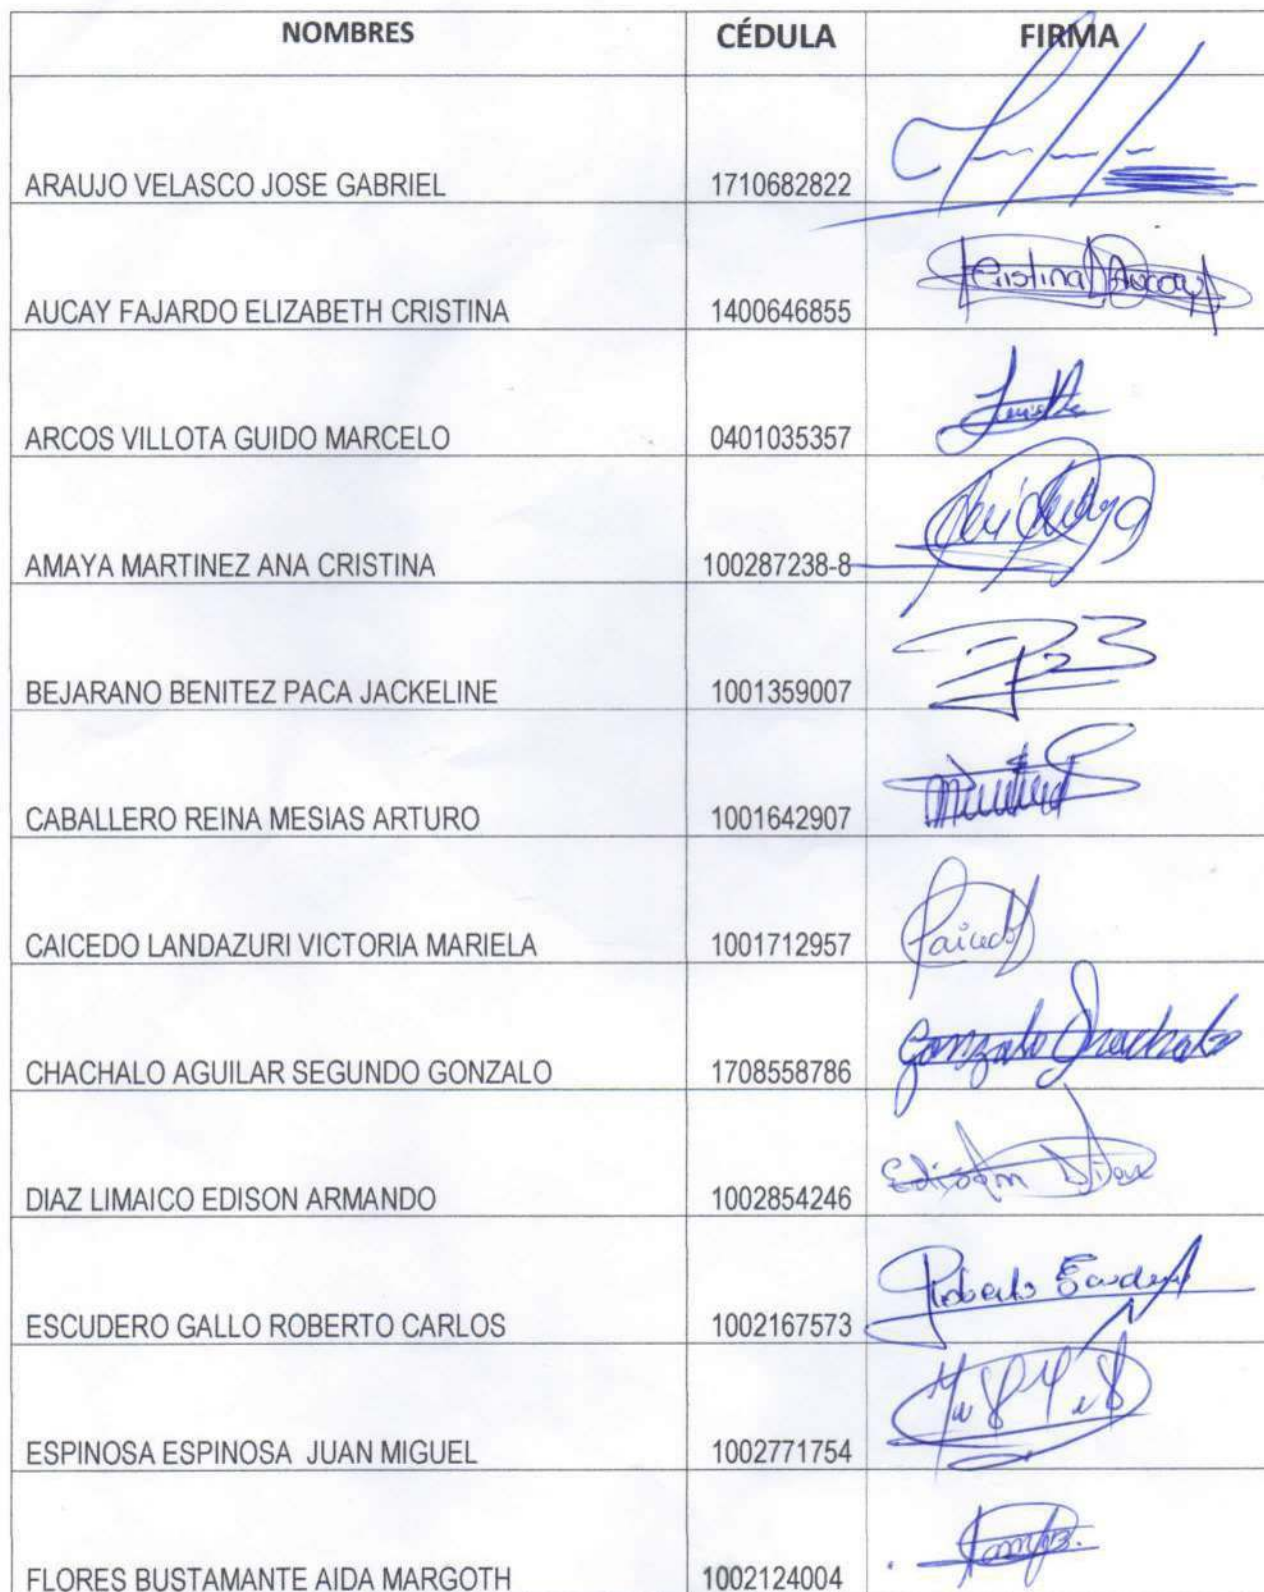 NOMBRES CÉDULA FIRMA
ARAUJO VELASCO JOSE GABRIEL 1710682822
AUCAY FAJARDO ELIZABETH CRISTINA 1400646855 Cristina Aucay
ARCOS VILLOTA GUIDO MARCELO 0401035357
AMAYA MARTINEZ ANA CRISTINA 100287238-8
BEJARANO BENITEZ PACA JACKELINE 1001359007
CABALLERO REINA MESIAS ARTURO 1001642907
CAICEDO LANDAZURI VICTORIA MARIELA 1001712957
CHACHALO AGUILAR SEGUNDO GONZALO 1708558786 Gonzalo Chachalo
DIAZ LIMAICO EDISON ARMANDO 1002854246 Edison Diaz
ESCUDERO GALLO ROBERTO CARLOS 1002167573 Roberto Escudero
ESPINOSA ESPINOSA JUAN MIGUEL 1002771754
FLORES BUSTAMANTE AIDA MARGOTH 1002124004